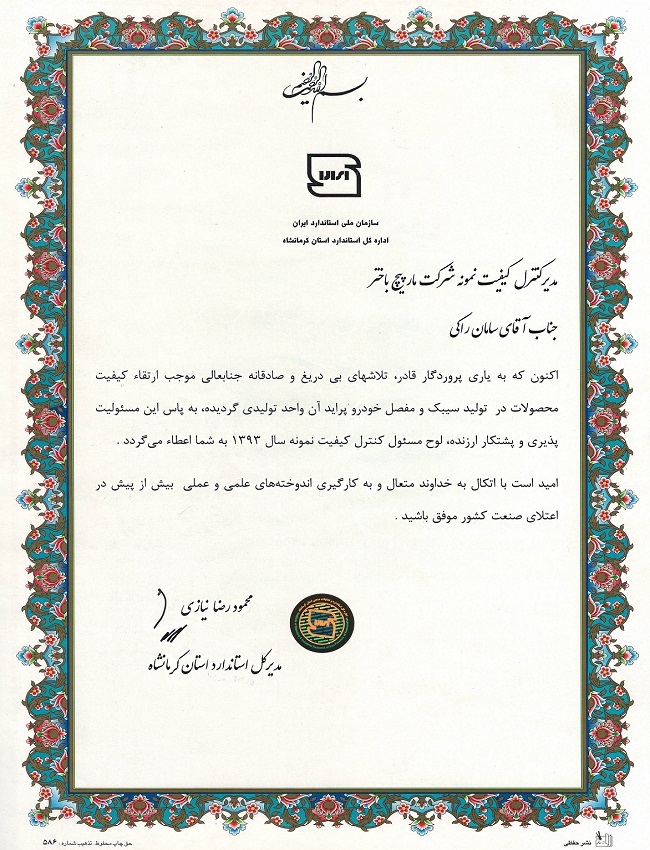 بسم الله الرحمن الرحیم
سازمان ملی استاندارد ایران
اداره کل استاندارد استان کرمانشاه
مدیر کنترل کیفیت نمونه شرکت مارپیچ باختر
جناب آقای سامان راکی
اکنون که به یاری پروردگار قادر، تلاشهای بی دریغ و صادقانه جنابعالی موجب ارتقاء کیفیت
محصولات در تولید سیبک و مفصل خودرو پراید آن واحد تولیدی گردیده، به پاس این مسئولیت
پذیری و پشتکار ارزنده، لوح مسئول کنترل کیفیت نمونه سال ۱۳۹۳ به شما اعطاء می‌گردد .
امید است با اتکال به خداوند متعال و به کارگیری اندوخته‌های علمی و عملی بیش از پیش در
اعتلای صنعت کشور موفق باشید .
محمود رضا نیازی
مدیرکل استاندارد استان کرمانشاه
نشر حفاظی
حق چاپ محفوظ. تذهیب شماره: ۵۸۶